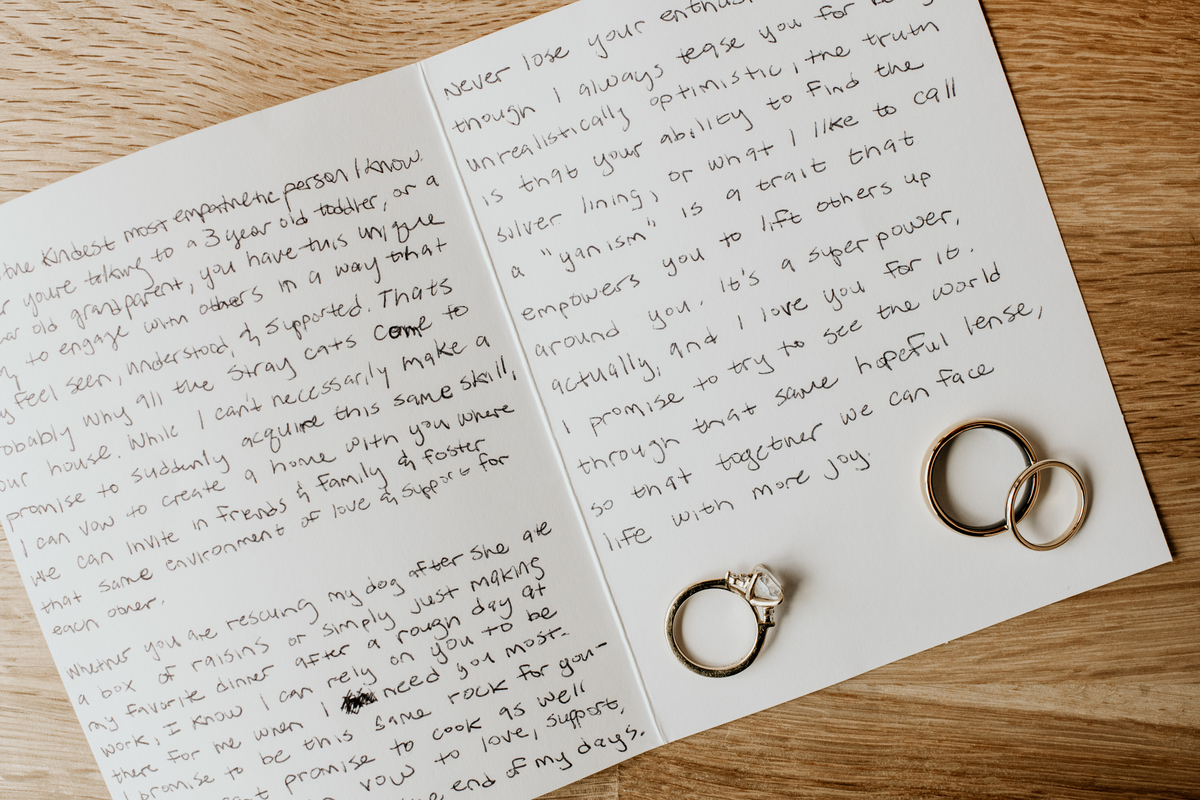 the kindest most empathetic person I know.
you're talking to a 3 year old toddler, or a
old grandparent, you have this unique
to engage with others in a way that
feel seen, understood, & supported. Thats
probably why all the stray cats come to
our house. While I can't necessarily make a
promise to suddenly acquire this same skill,
I can vow to create a home with you where
we can invite in friends & family & foster
that same environment of love & support for
each other.
Whether you are rescuing my dog after she ate
a box of raisins or simply just making
my favorite dinner after a rough day at
work, I know I can rely on you to be
there for me when I need you most-
I promise to be this same rock for you-
promise to cook as well
vow to love, support,
end of my days.
Never lose your
though I always tease you for
unrealistically optimistic, the truth
is that your ability to find the
silver lining, or what I like to call
a "yanism" is a trait that
empowers you to lift others up
around you. It's a super power,
actually, and I love you for it.
I promise to try to see the world
through that same hopeful lense,
so that together we can face
life with more joy.